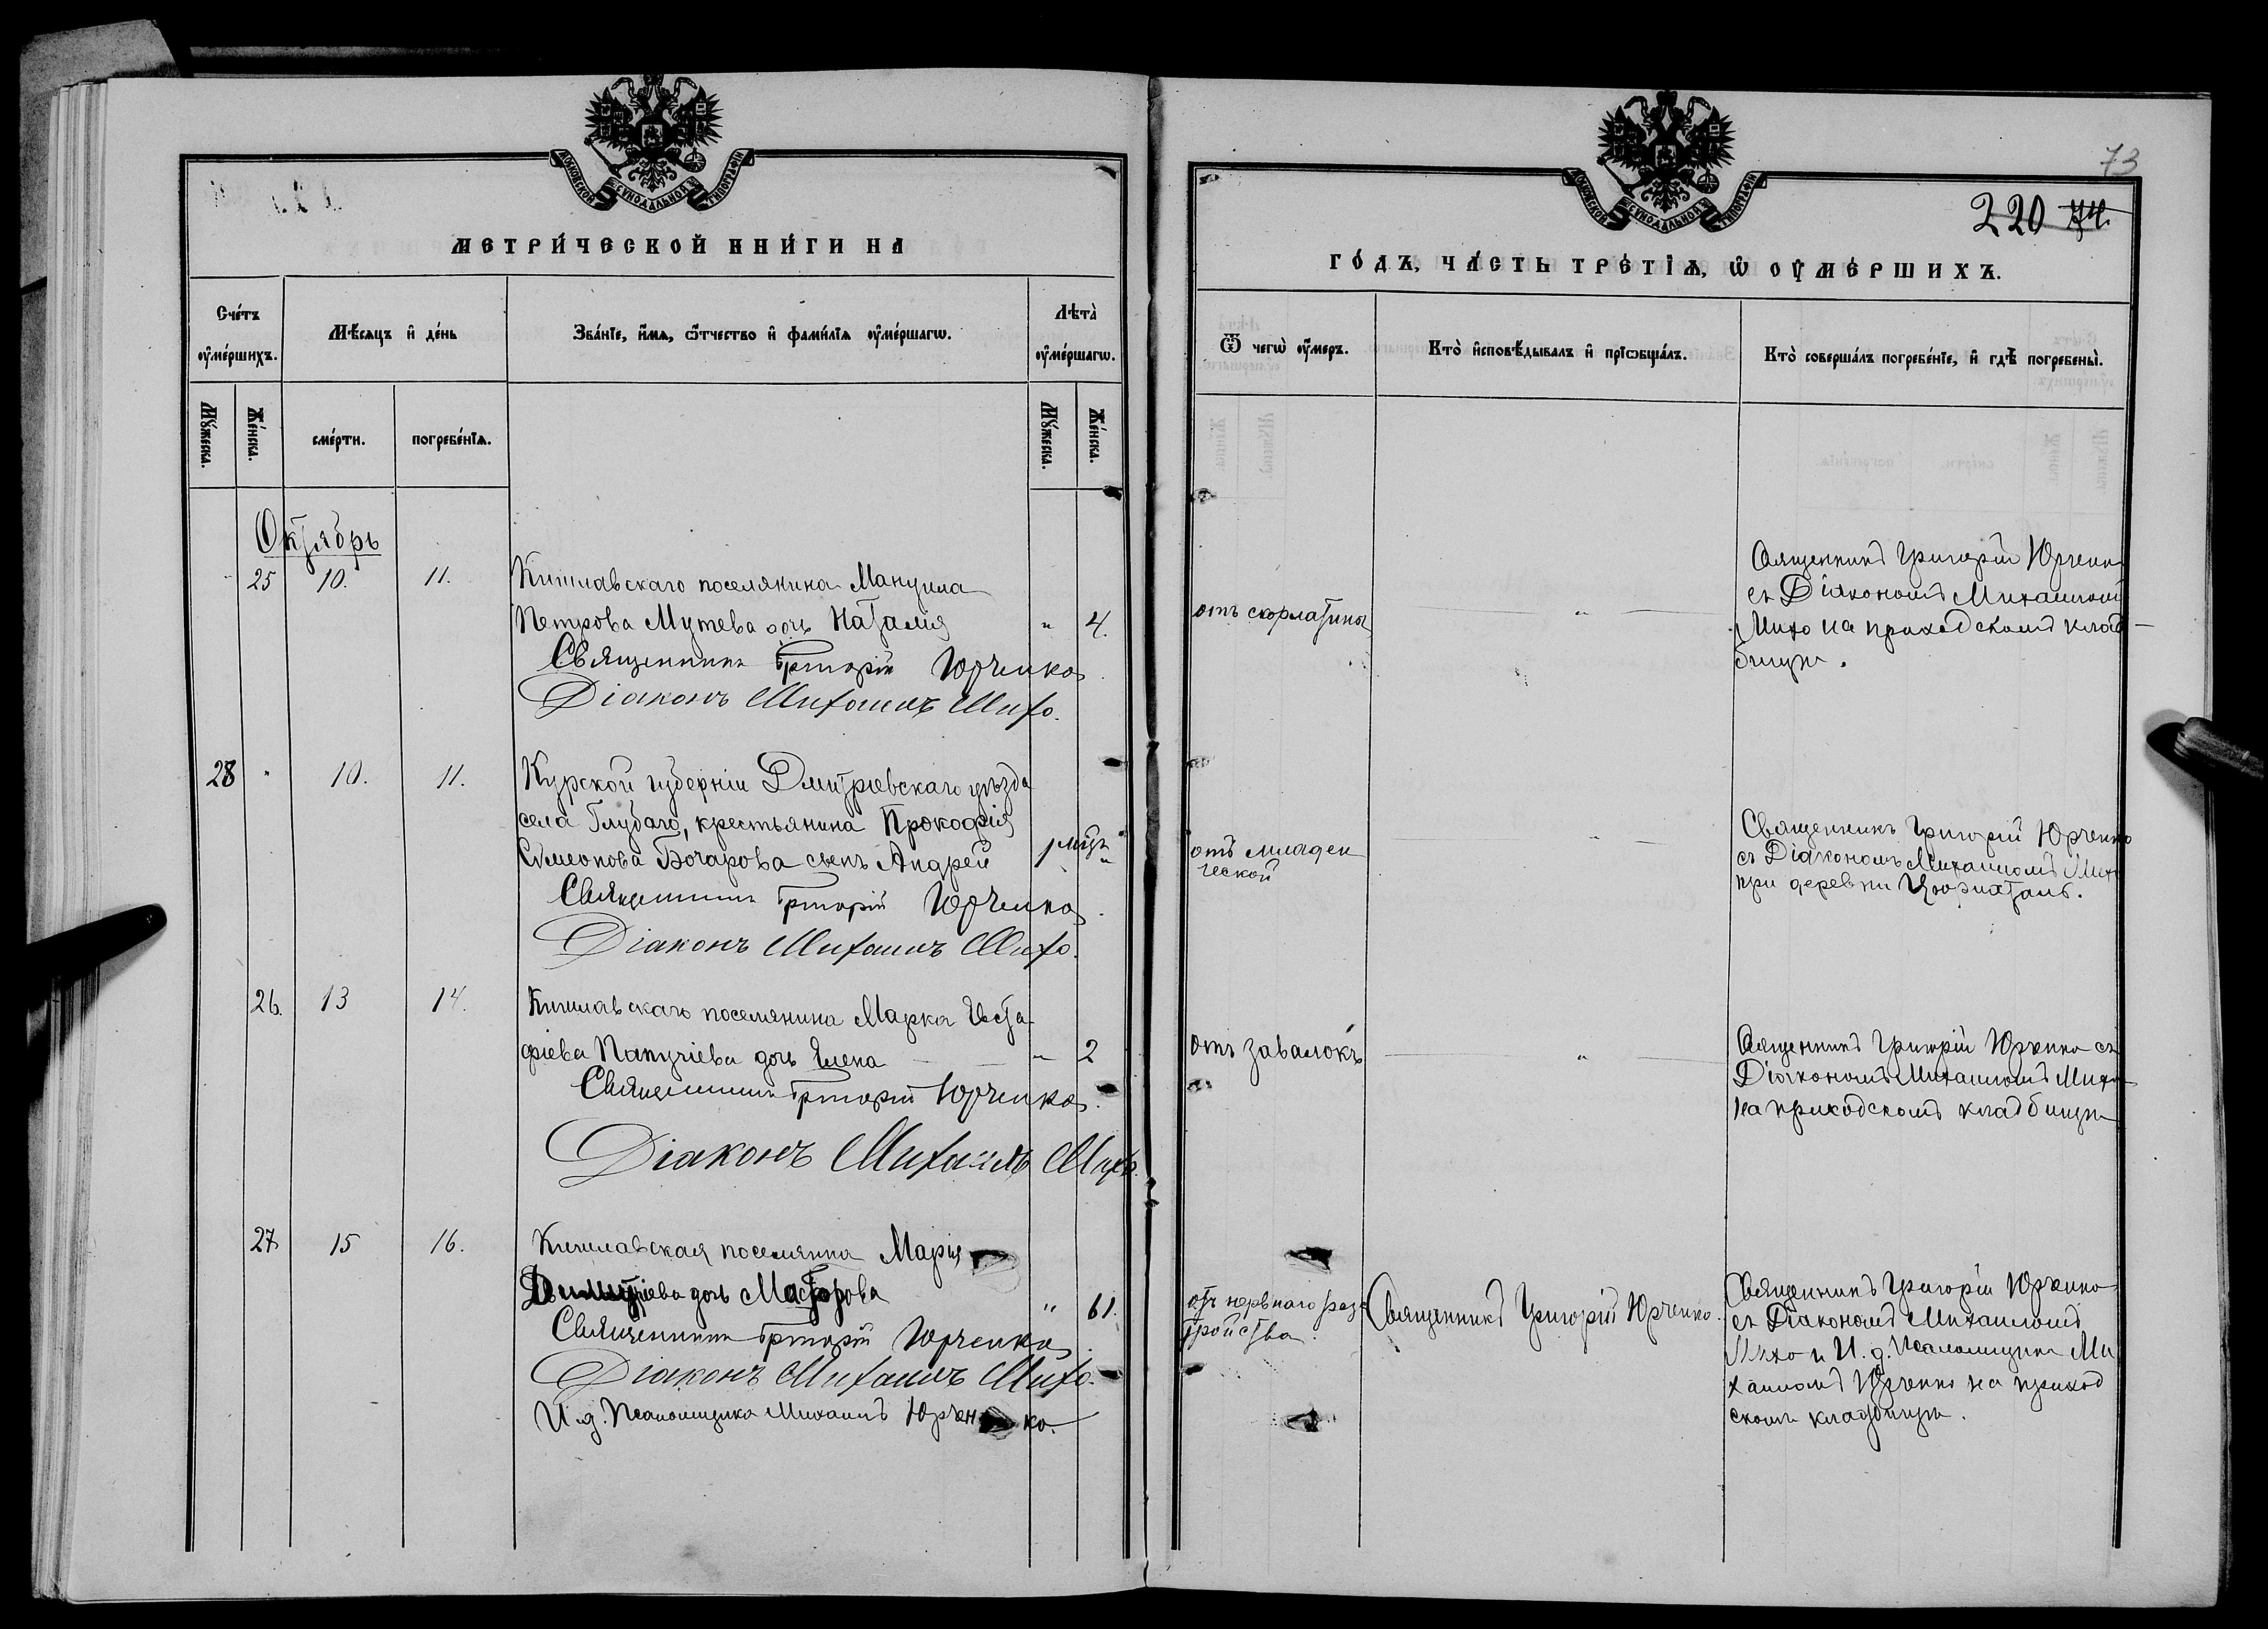 МОСКОВСКОЙ СѴНОДАЛЬНОЙ ТИПОГРАФІИ
МЕТРИ́ЧЕСКОЙ КНИ́ГИ НА
Сче́тъ ѹ҆ме́ршихъ.
Мѣ́сяцъ и҆ де́нь
Зва́нїе, и҆́мѧ, ѻ҆́тчество и҆ фами́лїѧ ѹ҆ме́ршагѡ.
Лѣта̀ ѹ҆ме́ршагѡ.
Мꙋ́жеска.
Же́нска.
сме́рти.
погребе́нїѧ.
Мꙋ́жеска.
Же́нска.
Октябрь
25 10. 11. Кишлавскаго поселянина Мануила
Петрова Мутева дочь Наталія " 4.
Священникъ Григорій Юрченко
Діаконъ Михаилъ Михо.
28 " 10. 11. Курской губерніи Дмитріевскаго уѣзда
села Глубаго, крестьянина Прокофія
Сѵмеонова Бочарова сынъ Андрей 1 мѣц. "
Священникъ Григорій Юрченко
Діаконъ Михаилъ Михо.
26. 13 14. Кишлавскаго поселянина Марка Евста-
фіева Папучіева дочь Елена " 2
Священникъ Григорій Юрченко
Діаконъ Михаилъ Михо.
27 15 16. Кишлавская поселянка Марія
Димитріева дочь Маторова " 61.
Священникъ Григорій Юрченко
Діаконъ Михаилъ Михо.
И.д. Псаломщика Михаилъ Юрченко.
МОСКОВСКОЙ СѴНОДАЛЬНОЙ ТИПОГРАФІИ
73
220 74.
ГО́ДЪ, ЧА́СТЬ ТРЕ́ТЇѦ, Ѡ҆ ОУ҆МЕ́РШИХЪ.
Ѿ чегѡ̀ ѹ҆́меръ.
Кто̀ и҆сповѣ́дывалъ и҆ прїѡбща́лъ.
Кто̀ соверша́лъ погребе́нїе, и҆ гдѣ̀ погребены̀.
отъ скорлатины
"
Священникъ Григорій Юрченко
съ Діакономъ Михаиломъ
Михо на приходскомъ клад-
бищѣ.
отъ младен
ческой
"
Священникъ Григорій Юрченко
съ Діакономъ Михаиломъ Михо
при деревни Цюрихталь.
отъ завалокъ
"
Священникъ Григорій Юрченко съ
Діакономъ Михаиломъ Михо
на приходскомъ кладбищѣ
отъ нервнаго раз-
тройства.
Священникъ Григорій Юрченко.
Священникъ Григорій Юрченко
съ Діакономъ Михаиломъ
Михо и И.д. Псаломщика Ми
хаиломъ Юрченко на приход
скомъ кладбищѣ.